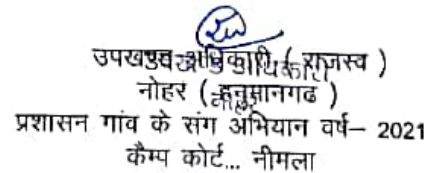 उपखण्ड अधिकारी ( राजस्व )
नोहर ( हनुमानगढ )
प्रशासन गांव के संग अभियान वर्ष– 2021
कैम्प कोर्ट... नीमला